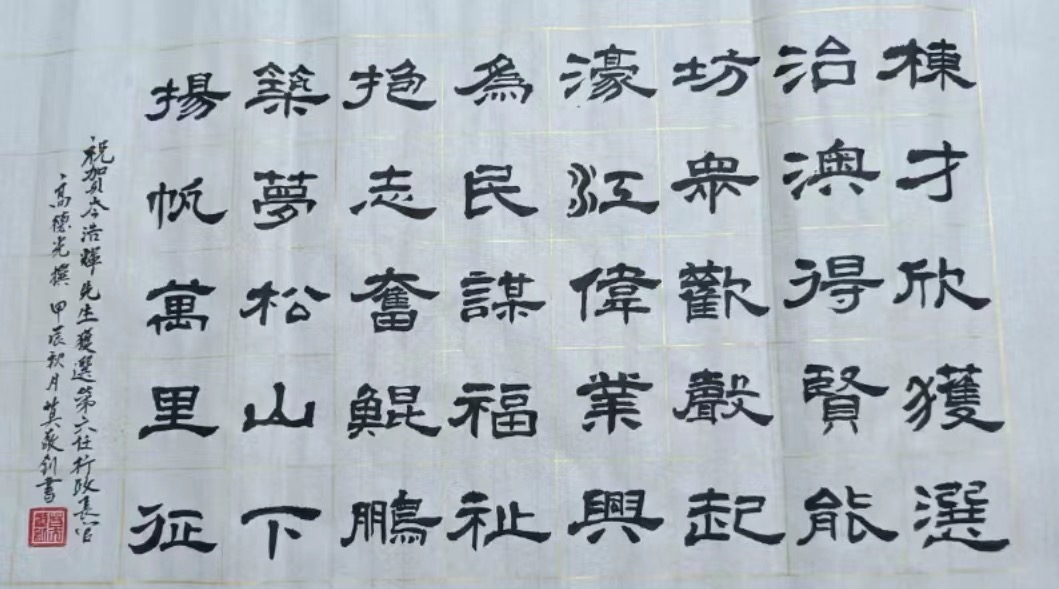 棟才欣獲選
治澳得賢能
坊眾歡聲起
濠江偉業興
為民謀福祉
抱志奮鯤鵬
築夢松山下
揚帆萬里征
祝賀岑浩輝先生獲選第六任行政長官
高德光撰 甲辰秋月 書